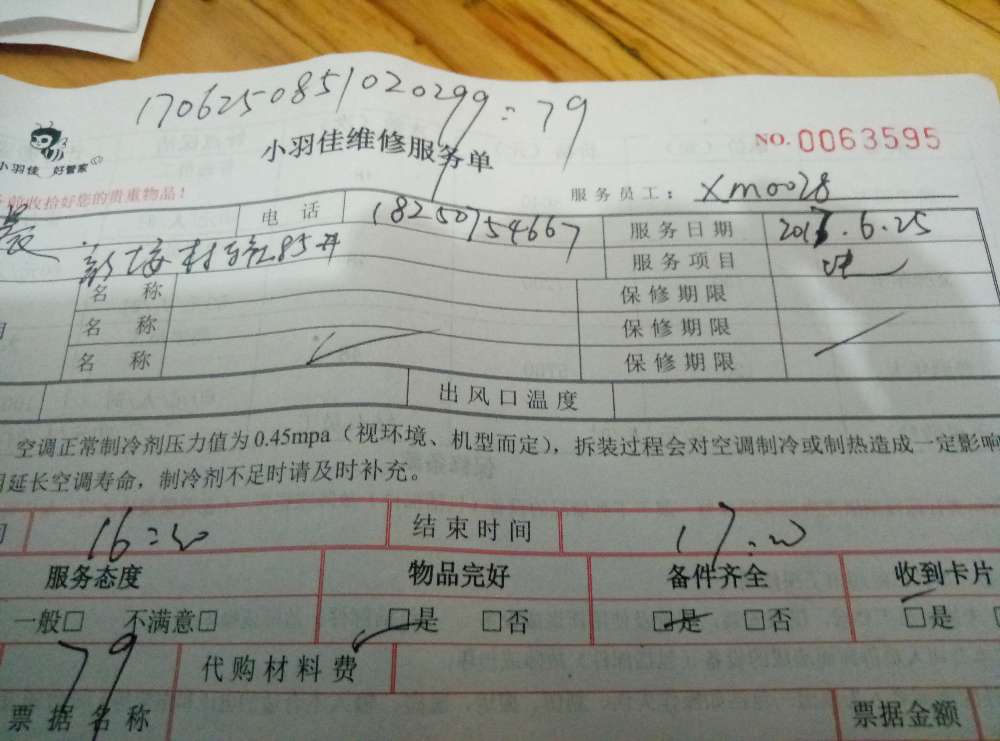 1706250851020299=79
小羽佳维修服务单
NO.0063595
小羽佳 好管家
收拾好您的贵重物品!
服务员工: xm0028
电话 18250754667 服务日期 2017.6.25
村 85 服务项目
名称 保修期限
名称 保修期限
名称 保修期限
出风口温度
空调正常制冷剂压力值为0.45mpa(视环境、机型而定),拆装过程会对空调制冷或制热造成一定影响
延长空调寿命,制冷剂不足时请及时补充。
16: 结束时间 17:
服务态度 物品完好 备件齐全 收到卡片
一般□ 不满意□ □是 □否 □是 □否 □是
79 代购材料费
票据名称 票据金额